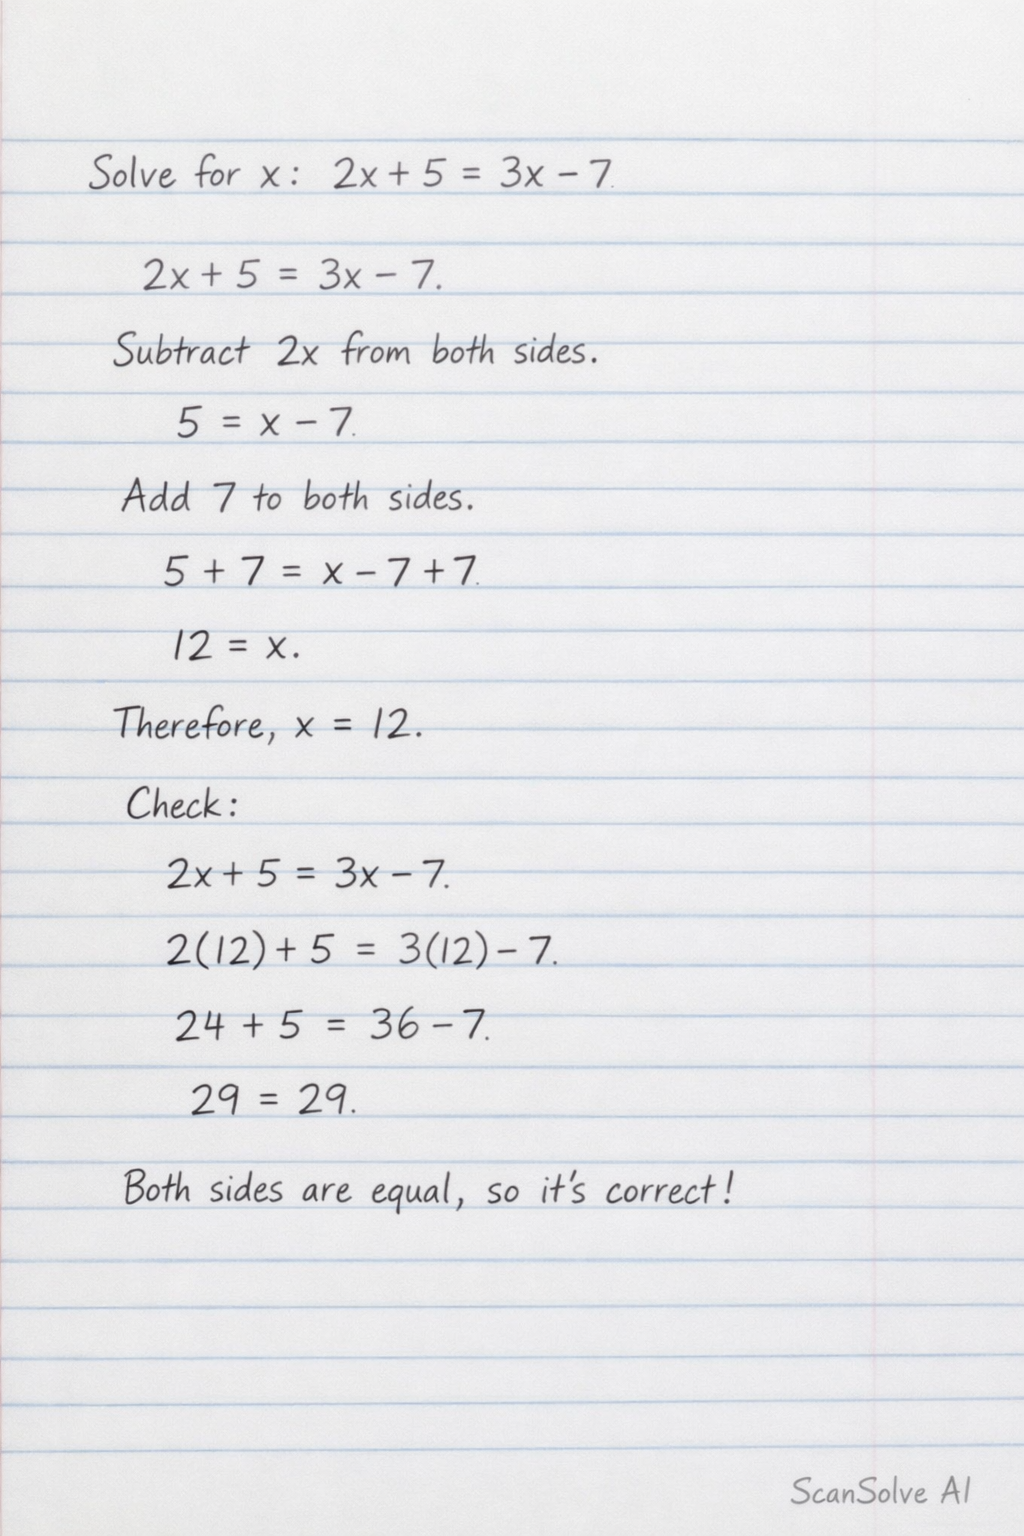 Solve for x: 2x + 5 = 3x - 7.
2x + 5 = 3x - 7.
Subtract 2x from both sides.
5 = x - 7.
Add 7 to both sides.
5 + 7 = x - 7 + 7.
12 = x.
Therefore, x = 12.
Check:
2x + 5 = 3x - 7.
2(12) + 5 = 3(12) - 7.
24 + 5 = 36 - 7.
29 = 29.
Both sides are equal, so it's correct!
ScanSolve AI